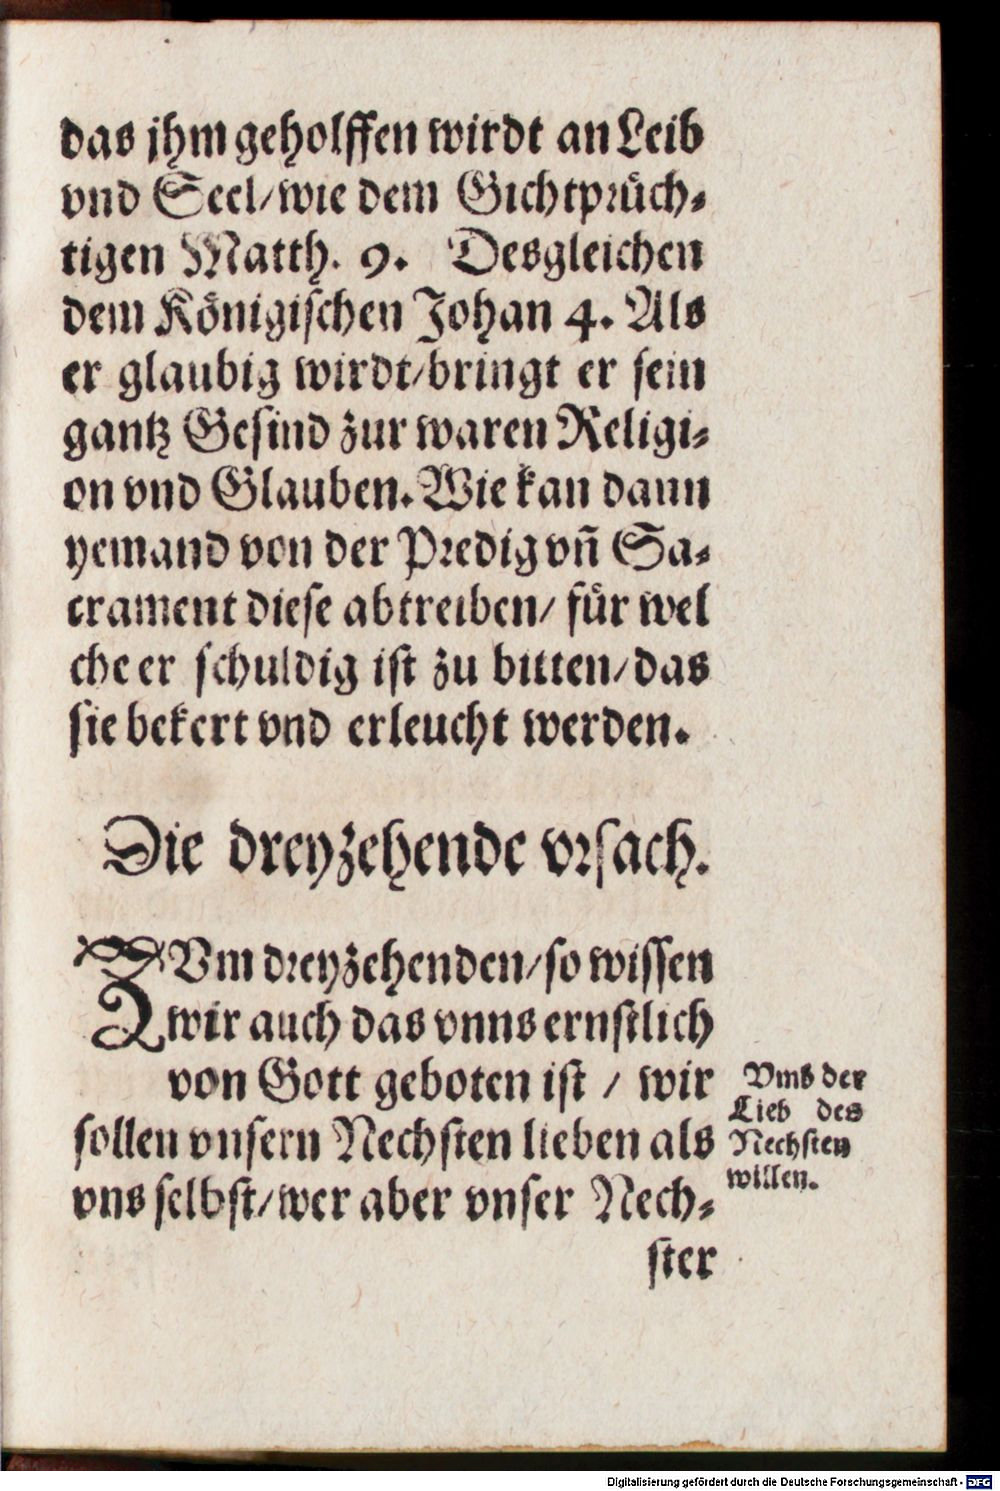 das jhm geholffen wirdt an Leib
vnd Seel/wie dem Gichtprüch⸗
tigen Matth. 9. Desgleichen
dem Königischen Johan 4. Als
er glaubig wirdt/bringt er sein
gantz Gesind zur waren Religi⸗
on vnd Glauben. Wie kan dann
yemand von der Predig vñ Sa⸗
crament diese abtreiben/ für wel
che er schuldig ist zu bitten/das
sie bekert vnd erleucht werden.
Die dreyzehende vrsach.
ZVm dreyzehenden/so wissen
wir auch das vnns ernstlich
von Gott geboten ist / wir
sollen vnsern Nechsten lieben als
vns selbst/wer aber vnser Nech⸗
ster
Vmb der
Lieb des
Nechsten
willen.
Digitalisierung gefördert durch die Deutsche Forschungsgemeinschaft - DFG